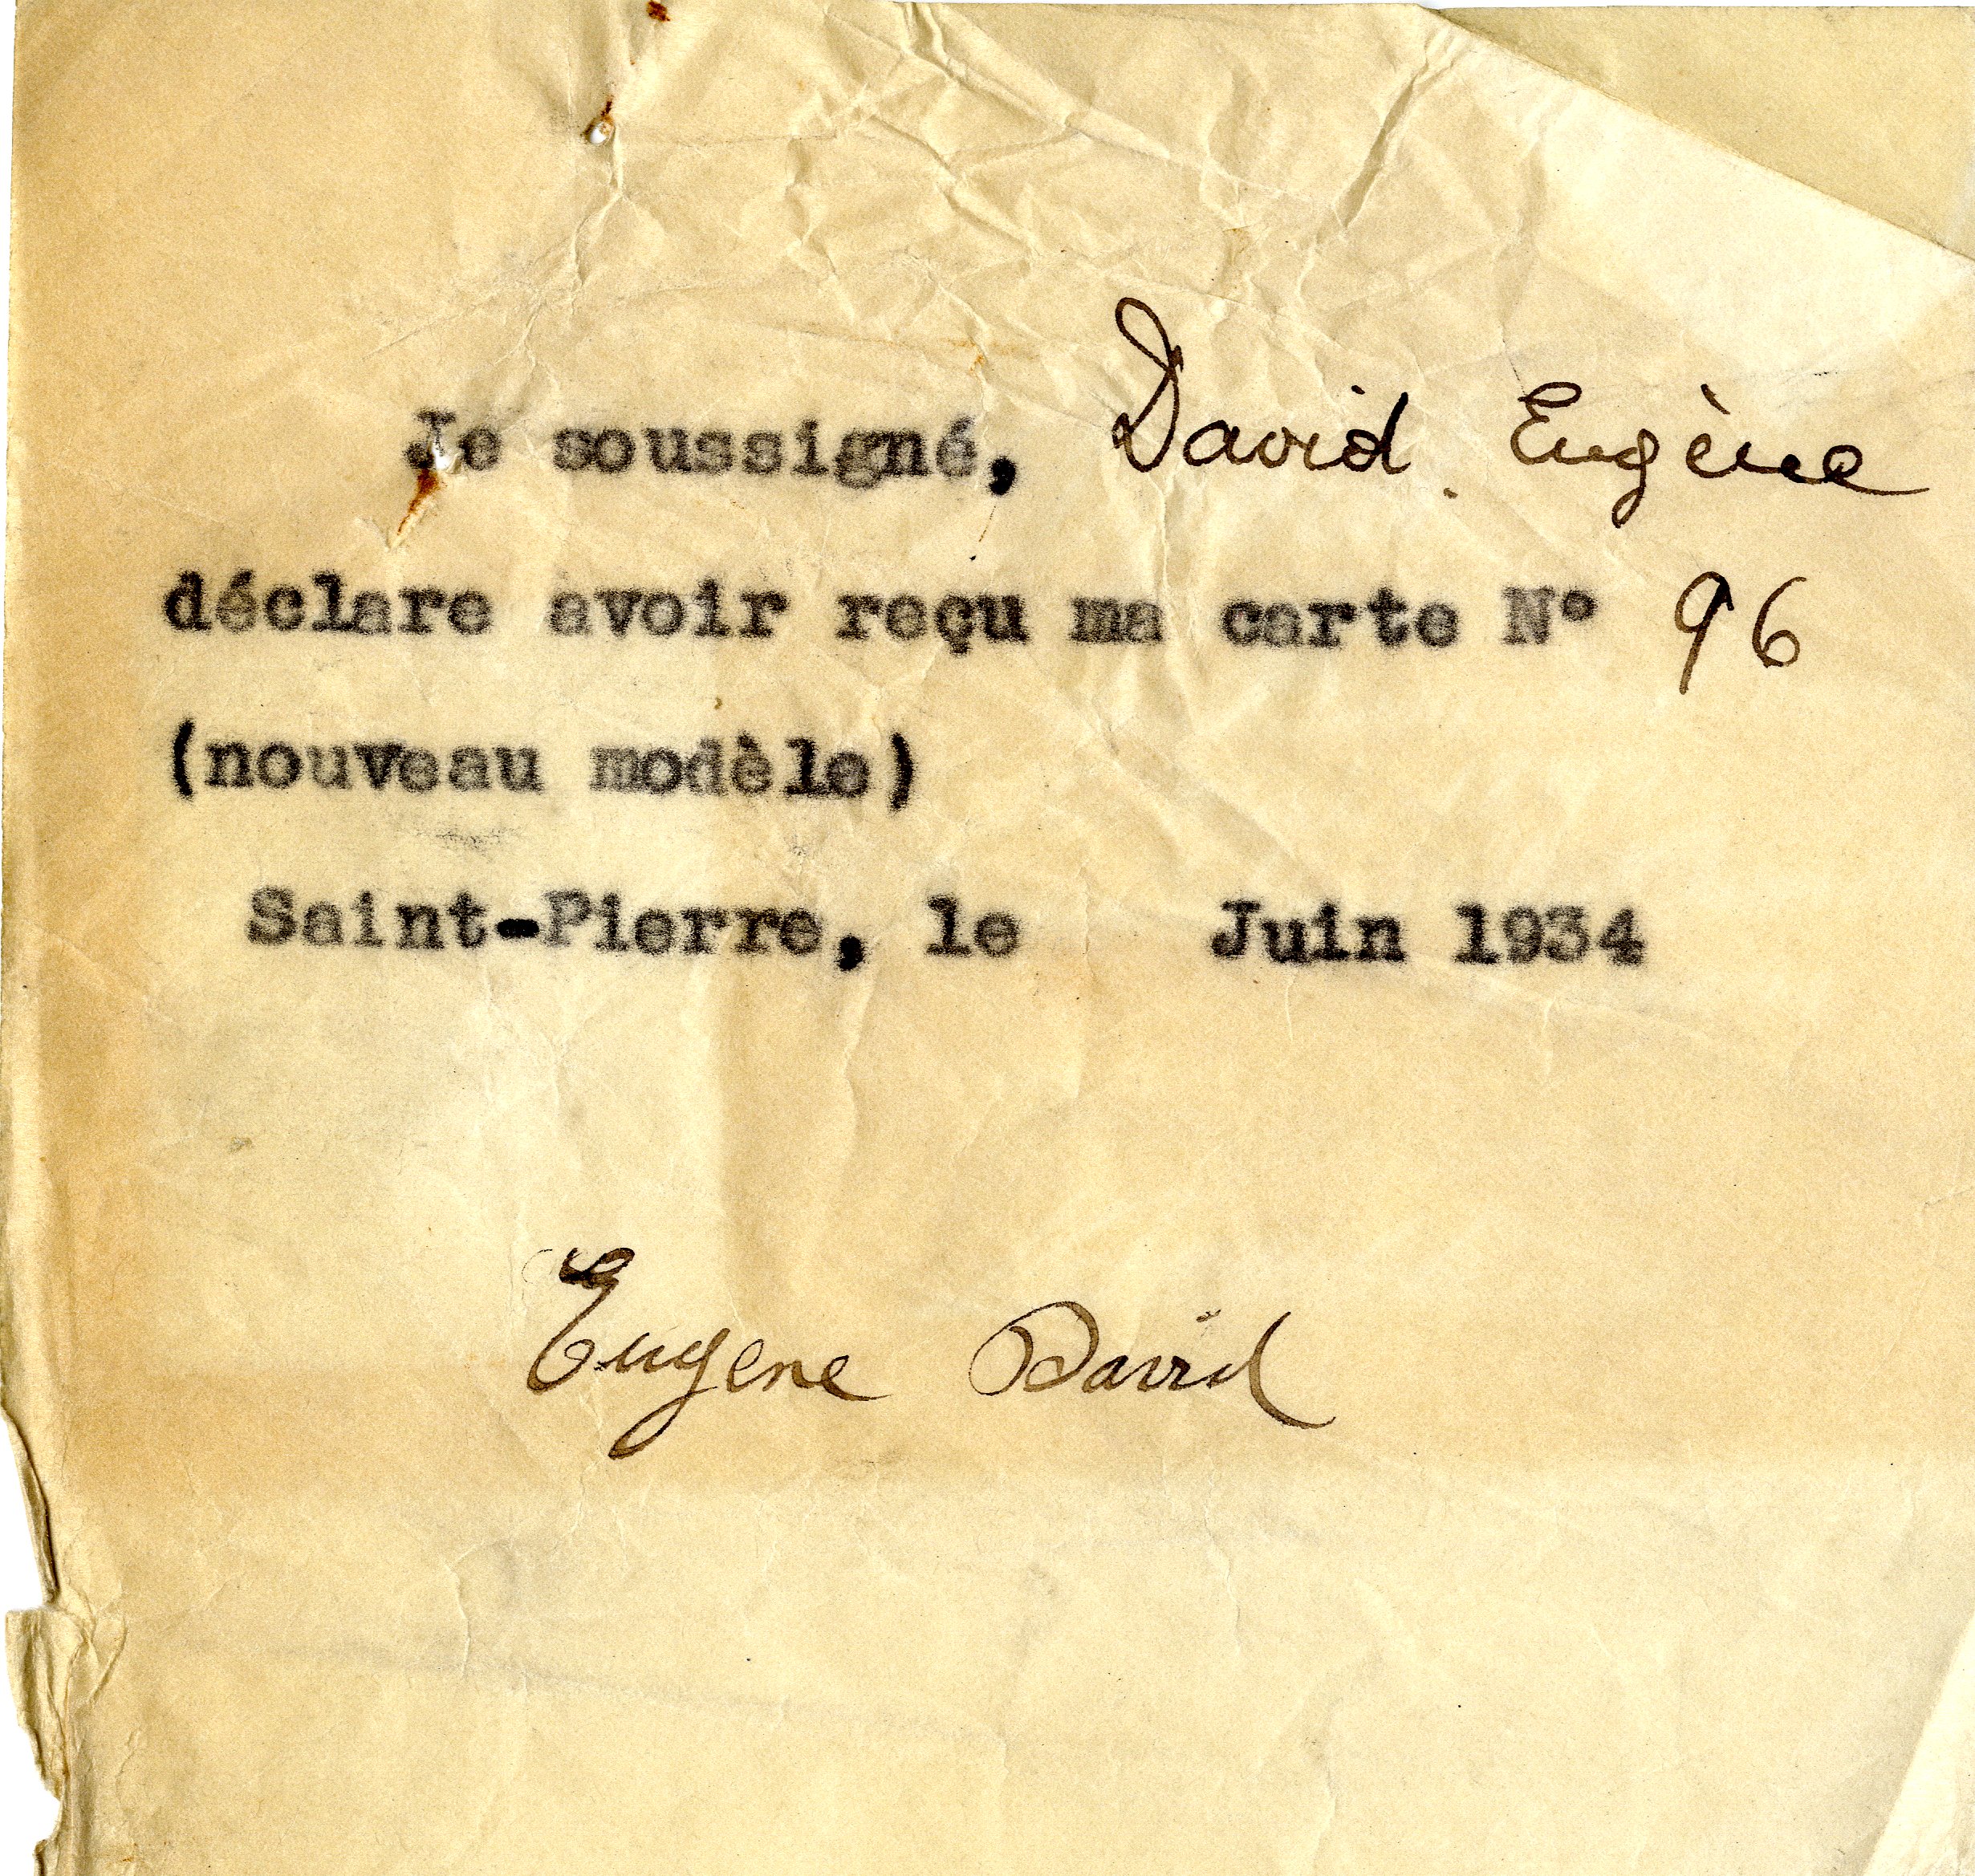 Je soussigné, David Eugène
déclare avoir reçu ma carte N° 96
(nouveau modèle)
Saint-Pierre, le Juin 1934
Eugene David